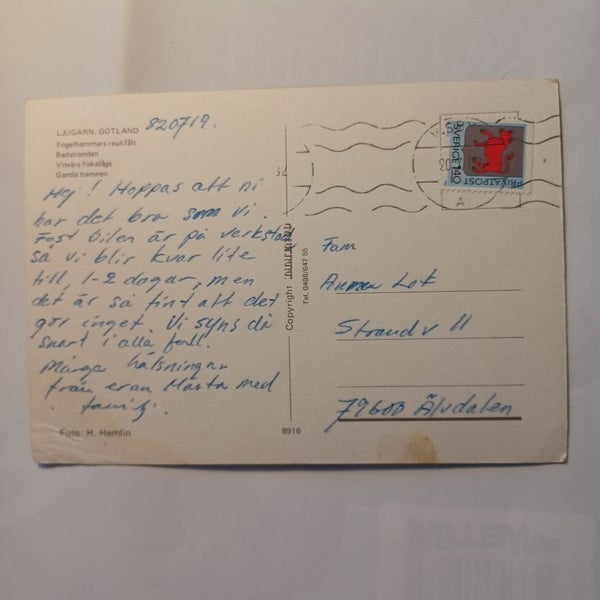 LJUGARN, GOTLAND
820719.
Fogelhammars raukfält
Badstranden
Vitvärs fiskeläge
Gamla hamnen
Hej! Hoppas att ni
har det bra som vi.
Fast bilen är på verkstad
så vi blir kvar lite
till, 1-2 dagar, men
det är så fint att det
gör inget. Vi syns då
snart i alla fall.
Många hälsningar
från eran Mästa med
familj.
Foto: H. Hemlin
8916
Copyright
Tel. 0498/647 55
SVERIGE 140
PRIVATPOST
20
A
Fam
Lok
Strandv 11
79600 Älvdalen